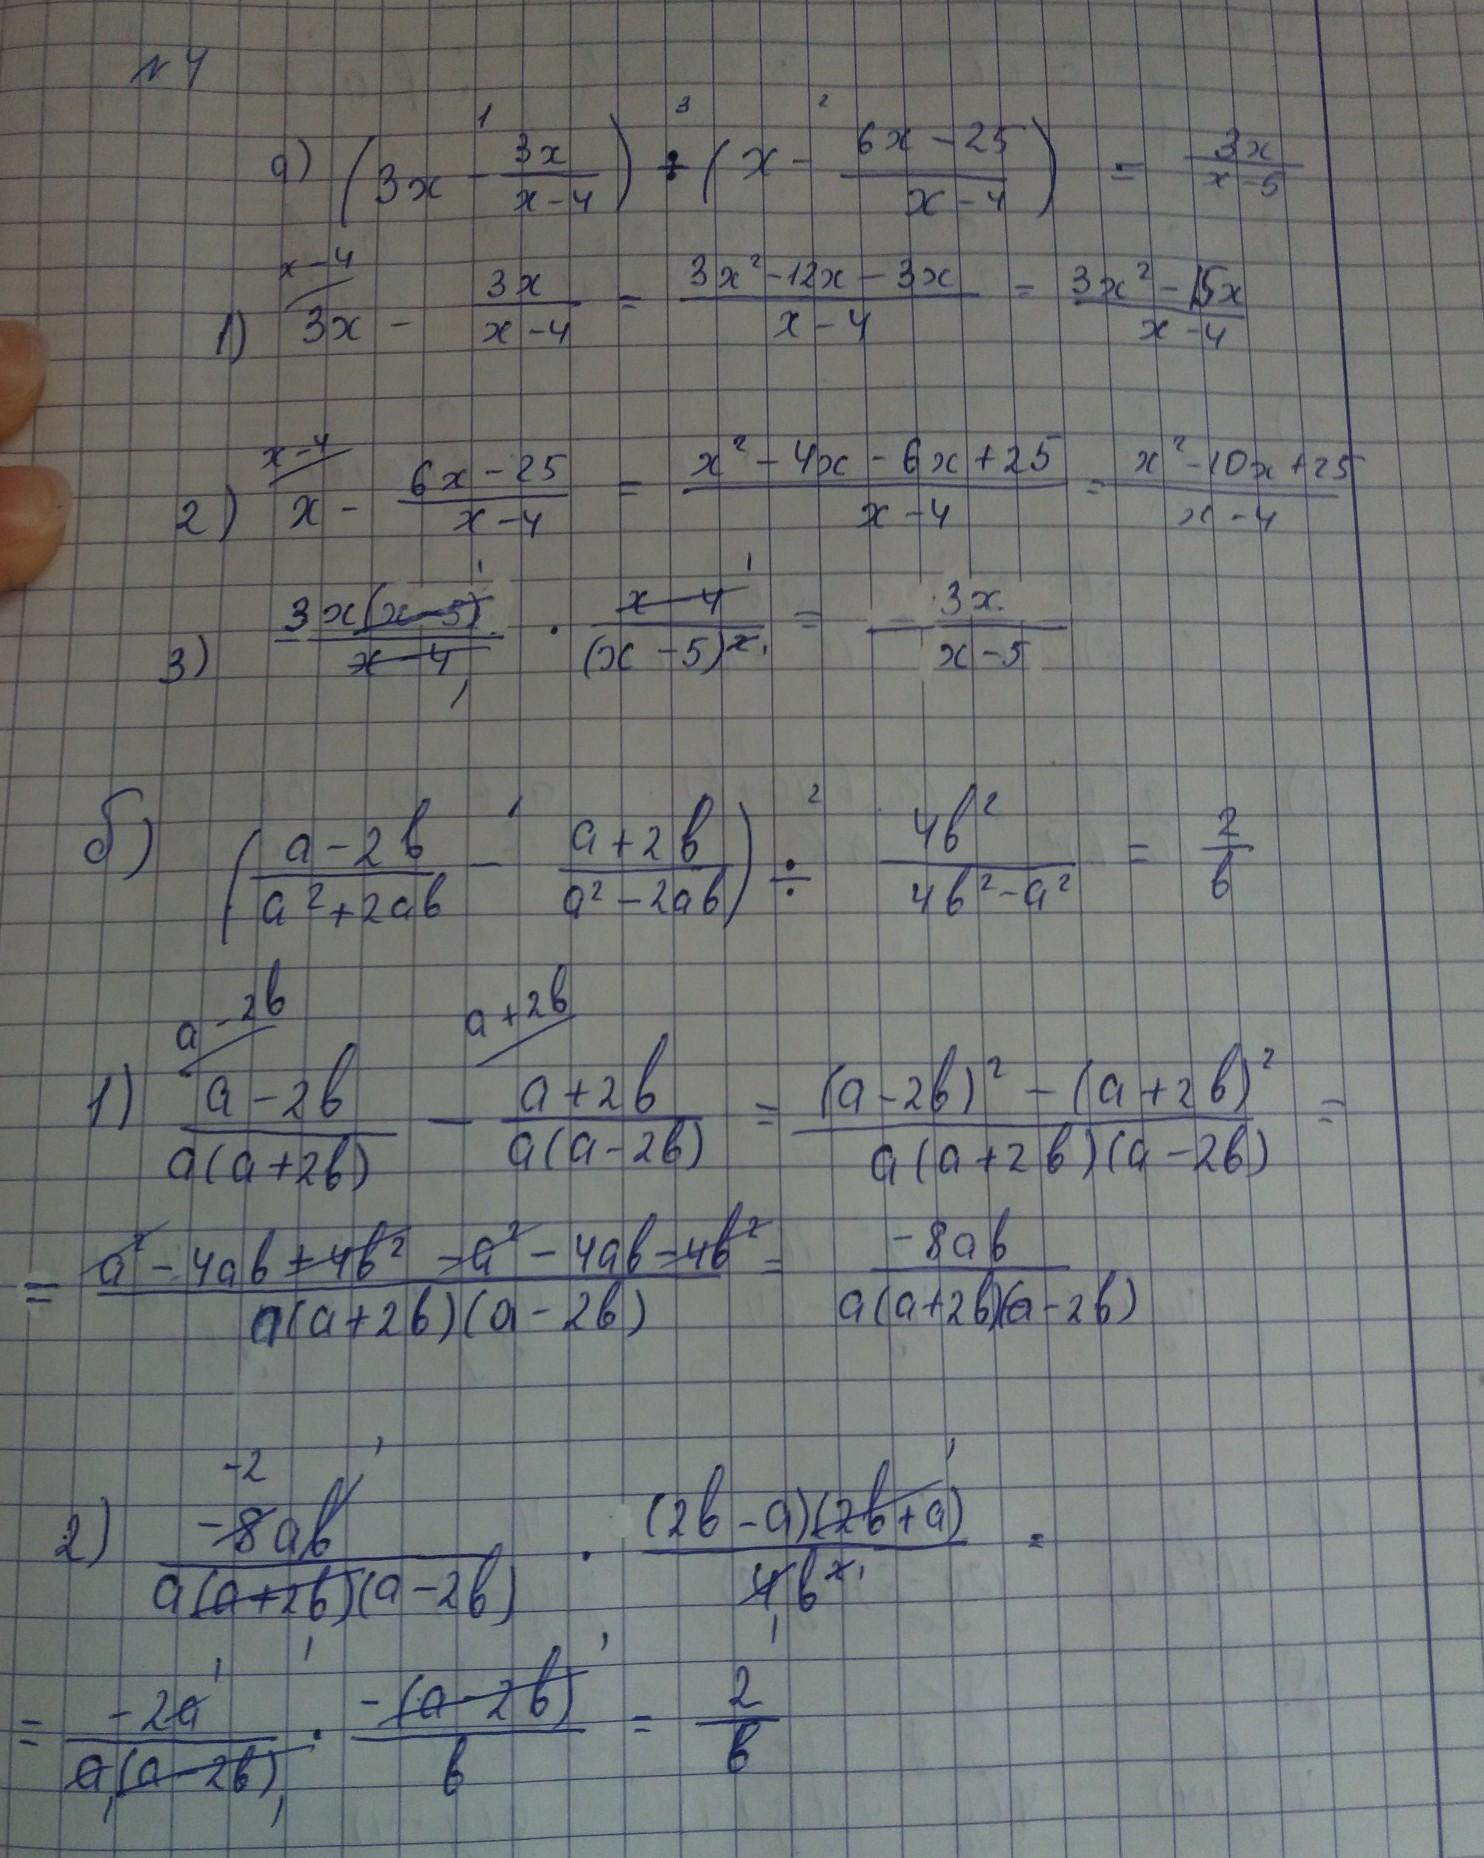 № 4
а) (3x - 3x/(x-4)) ÷ (x - (6x-25)/(x-4)) = 3x/(x-5)
1) 3x - 3x/(x-4) = (3x²-12x-3x)/(x-4) = (3x²-15x)/(x-4)
2) x - (6x-25)/(x-4) = (x²-4x-6x+25)/(x-4) = (x²-10x+25)/(x-4)
3) 3x(x-5)/(x-4) · (x-4)/(x-5)² = 3x/(x-5)
б) ((a-2b)/(a²+2ab) - (a+2b)/(a²-2ab)) ÷ 4b²/(4b²-a²) = 2/b
1) (a-2b)/(a(a+2b)) - (a+2b)/(a(a-2b)) = ((a-2b)²-(a+2b)²)/(a(a+2b)(a-2b)) =
= (a²-4ab+4b²-a²-4ab-4b²)/(a(a+2b)(a-2b)) = -8ab/(a(a+2b)(a-2b))
2) -8ab/(a(a+2b)(a-2b)) · (2b-a)(2b+a)/(4b²) =
= -2a/(a(a-2b)) · -(a-2b)/b = 2/b